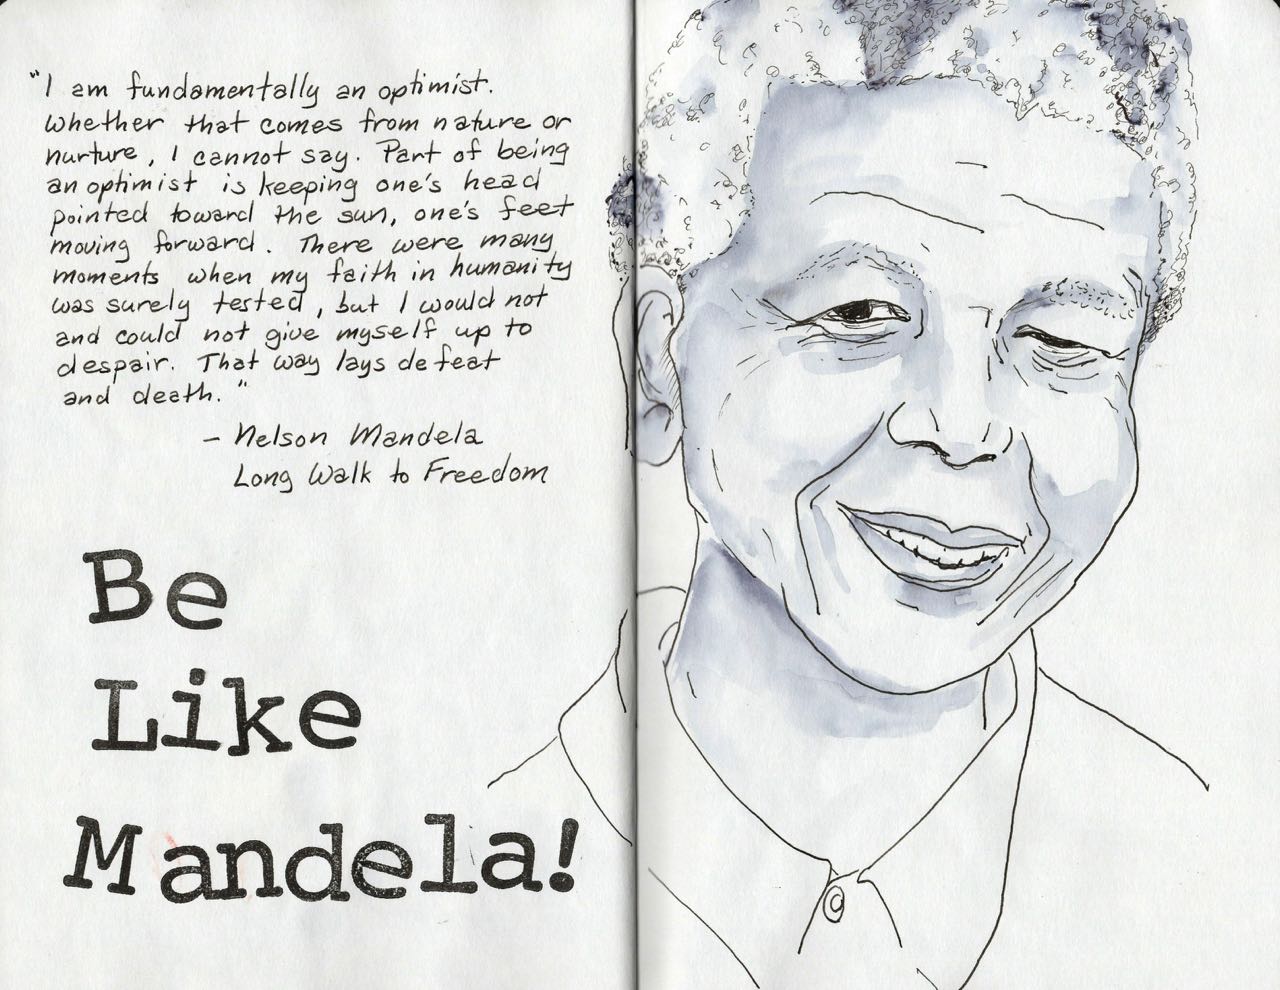 "I am fundamentally an optimist.
Whether that comes from nature or
nurture, I cannot say. Part of being
an optimist is keeping one's head
pointed toward the sun, one's feet
moving forward. There were many
moments when my faith in humanity
was surely tested, but I would not
and could not give myself up to
despair. That way lays defeat
and death."
- Nelson Mandela
Long Walk to Freedom
Be
Like
Mandela!